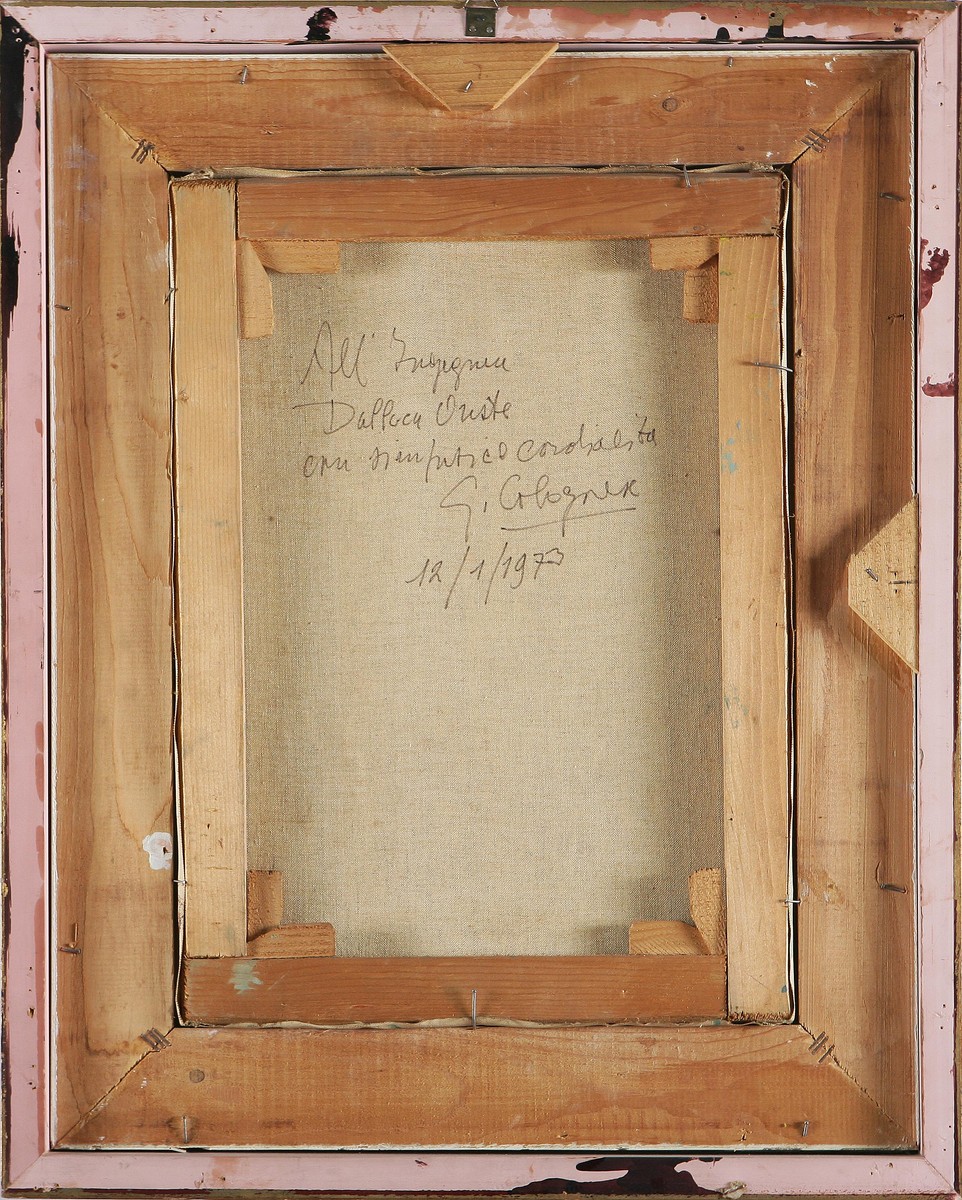 All'Ingegner
Dalloca Oreste
con simpatica cordialità
G. Cologner
12/1/1973